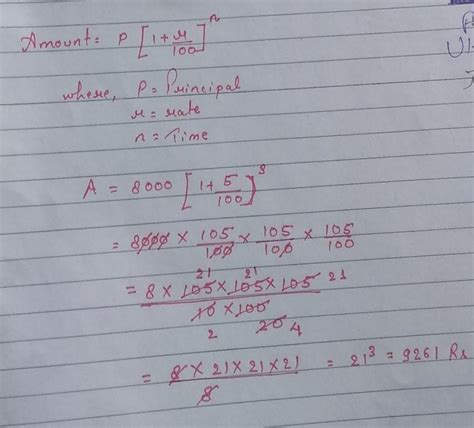 Amount = P [1 + r/100]^n
where, P = Principal
r = rate
n = Time
A = 8000 [1 + 5/100]^3
= 8000 × 105/100 × 105/100 × 105/100
21 21
= 8 × 105 × 105 × 105 21
10 × 100
2 20 4
= 8 × 21 × 21 × 21 / 8 = 21^3 = 9261 Rs